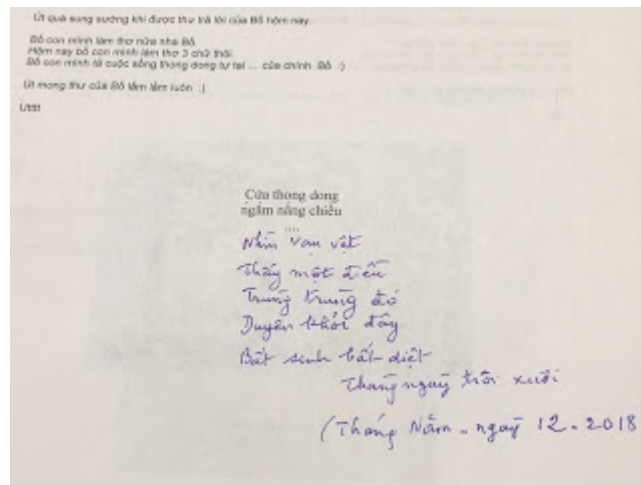 Út quá sung sướng khi được thư trả lời của Bố hôm nay.
Bố con mình làm thơ nữa nha Bố.
Hôm nay bố con mình làm thơ 3 chữ thôi.
Bố con mình tả cuộc sống thong dong tự tại ... của chính Bố :)
Út mong thư của Bố lắm lắm luôn :)
Út
Cứu thong dong
ngắm nắng chiều
....
Nhìn vạn vật
Thấy một điều
Trùng trùng đó
Duyên khởi đây
Bất sinh bất diệt
Tháng ngày trôi xuôi
(Tháng Năm - ngày 12 - 2018